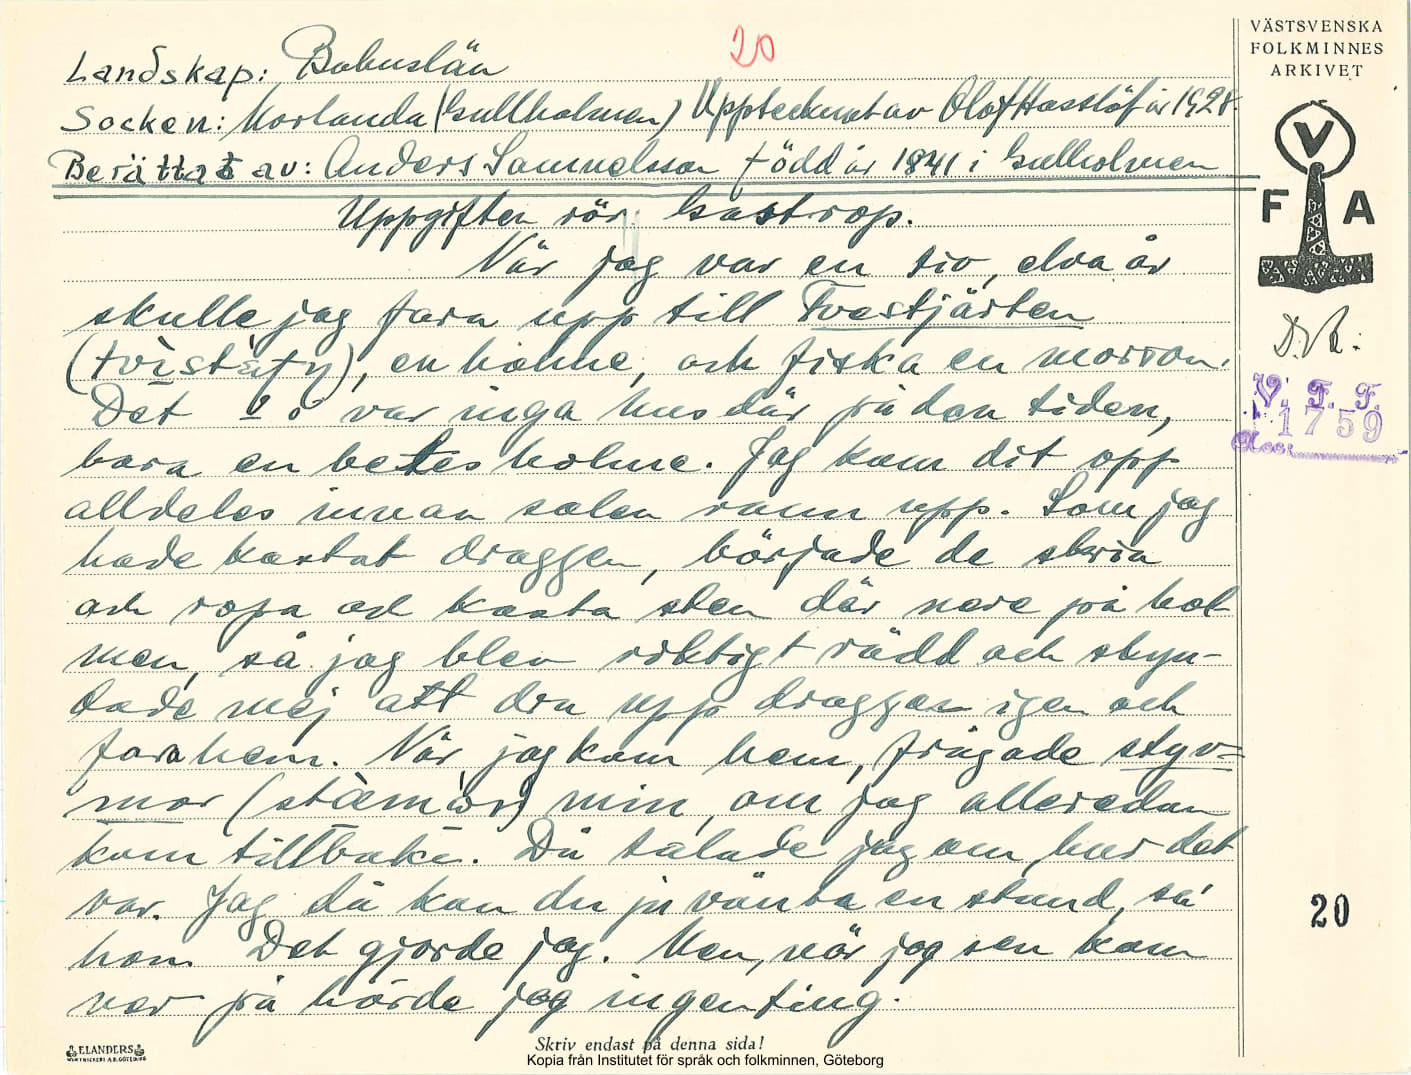 20
VÄSTSVENSKA
FOLKMINNES
ARKIVET
Landskap: Bohuslän
Socken: Morlanda (Gullholmen) Upptecknat av Olof Hasslöf år 1928.
Berättat av: Anders Samuelsson född år 1841 i Gullholmen
V
F A
Uppgiften rör Gastrop.
När jag var en tio, elva år
skulle jag fara upp till Tvestjärten
en holme, och fiska en morron.
Det var inga hus där på den tiden,
bara en betesholme. Jag kom dit opp
alldeles innan solen rann upp. Som jag
hade kastat draggen, började de skria
och ropa och kasta sten där nere på hol
men, så jag blev riktigt rädd och skyn-
dade mej att dra upp draggen igen och
fara hem. När jag kom hem, frågade styv-
mor min, om jag alleredan
kom tillbaka. Då talade jag om hur det
var. Jag då kan du ju vänta en stund, sa
hon. Det gjorde jag. Men, när jag sen kom
ner på hörde jag ingenting.
V. F. F.
1759
Acc:
20
ELANDERS
Skriv endast på denna sida!
Kopia från Institutet för språk och folkminnen, Göteborg